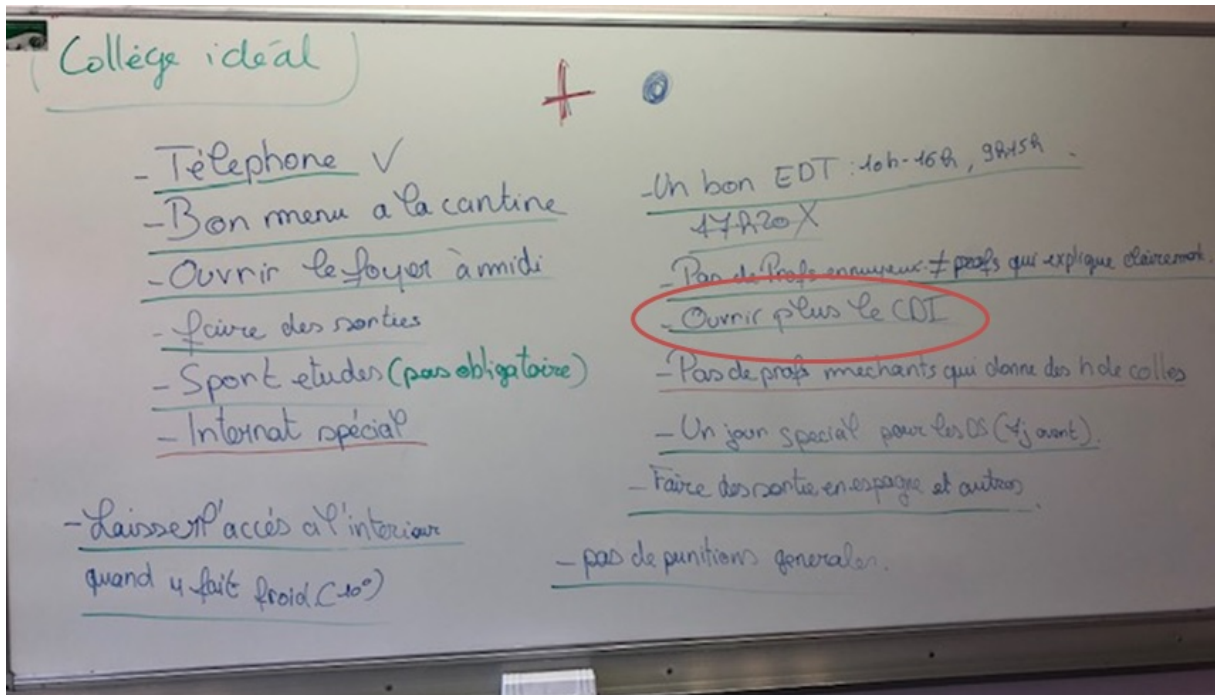 Collège idéal
+
- Télephone V
- Bon menu a la cantine
- Ouvrir le foyer à midi
- faire des sorties
- Sport etudes (pas obligatoire)
- Internat spécial
- Laisser l'accés à l'interieur
quand il fait froid (10°)
- Un bon EDT : 10h-16h, 9h15h
17h20 X
- Pas de Profs ennuyeux ≠ profs qui explique clairement.
- Ouvrir plus le CDI
- Pas de profs mechants qui donne des h de colles
- Un jour special pour les DS (1j avant).
- Faire des sortie en espagne et autres
- pas de punitions generales.